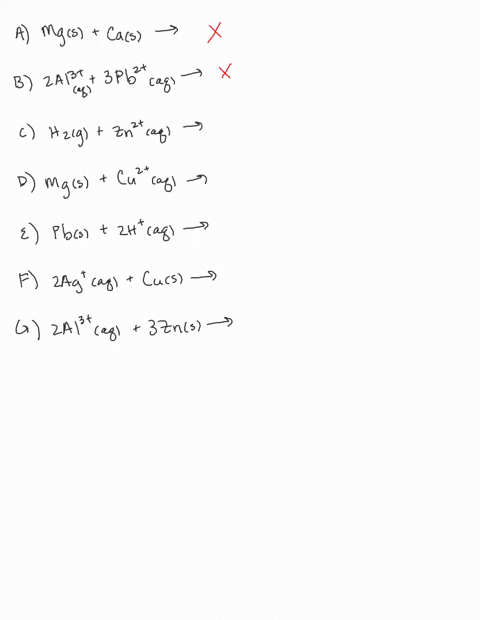 A) Mg(s) + Ca(s) → X
B) 2Al³⁺(aq) + 3Pb²⁺(aq) → X
C) H₂(g) + Zn²⁺(aq) →
D) Mg(s) + Cu²⁺(aq) →
E) Pb(s) + 2H⁺(aq) →
F) 2Ag⁺(aq) + Cu(s) →
G) 2Al³⁺(aq) + 3Zn(s) →